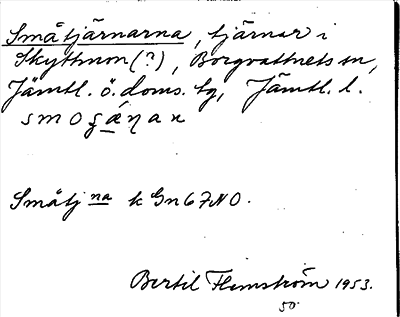 Småtjärnarna, tjärnar i
Skyttmon (?), Borgvattnets sn,
Jämtl. ö. doms. tg, Jämtl. l.
Småtj na k Gn67NO.
Bertil Flemström 1953.
50